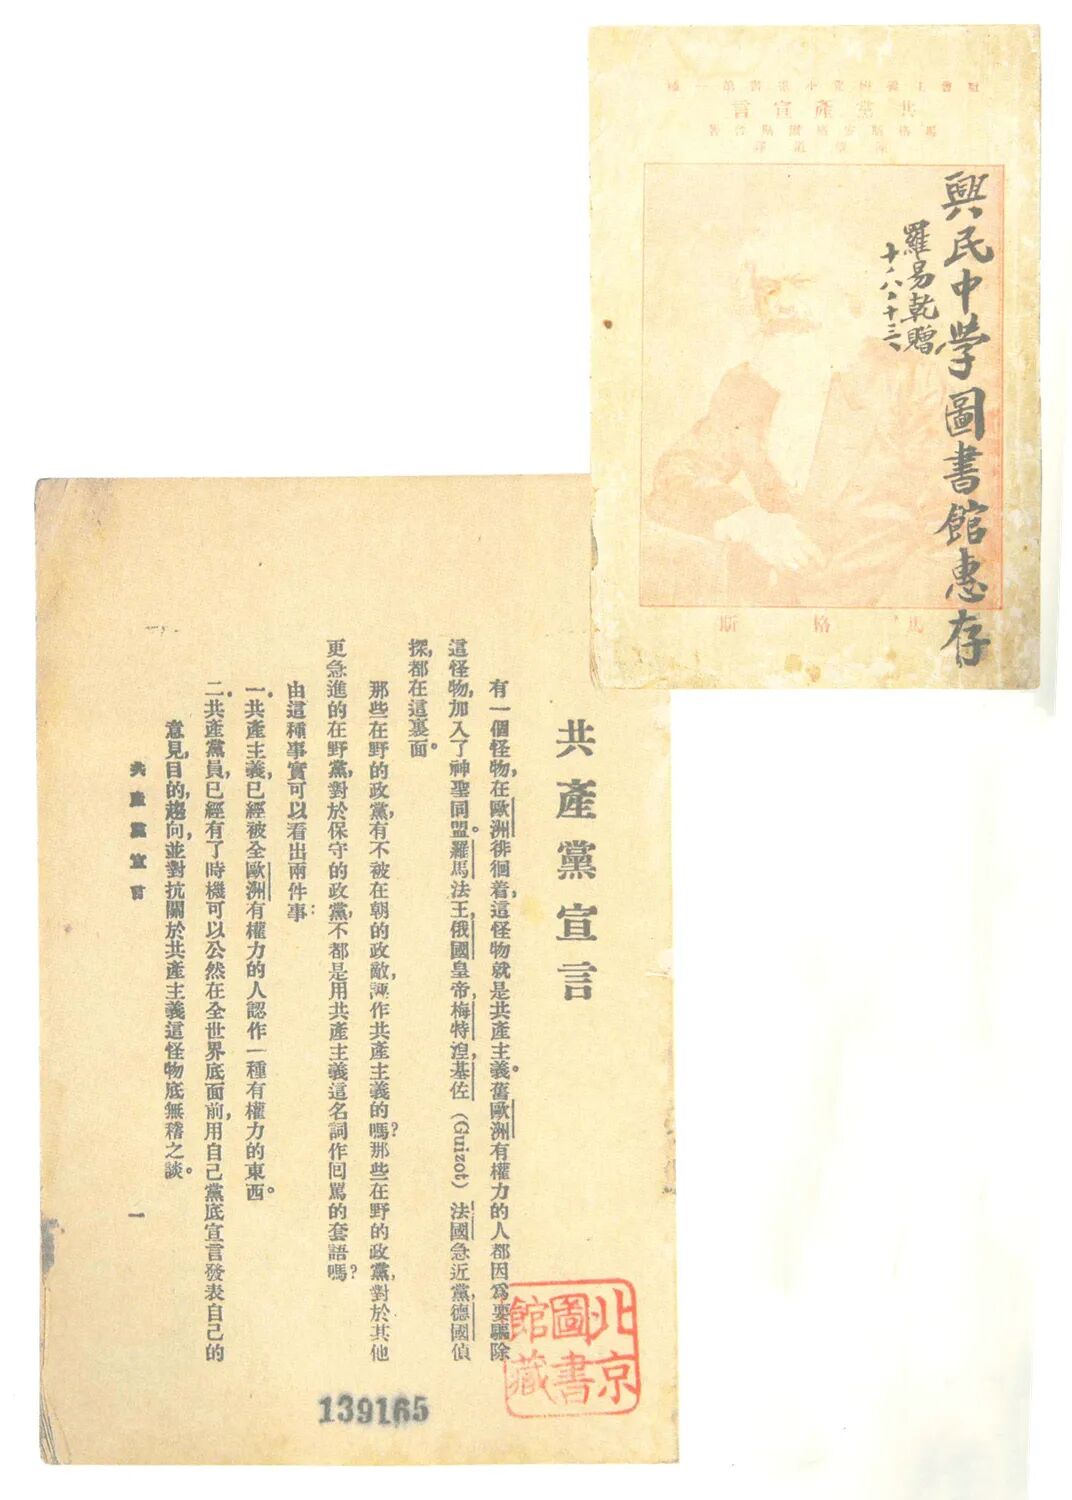 社會主義研究小叢書第一種
共黨產宣言
馬格斯安格爾斯合著
陳望道譯
興民中学圖書館惠存
羅易乾贈
十、八、十三、
馬格斯
共產黨宣言
有一個怪物，在歐洲徘徊着，這怪物就是共產主義。舊歐洲有權力的人都因爲要驅除
這怪物，加入了神聖同盟。羅馬法王，俄國皇帝，梅特湼，基佐（Guizot）法國急近黨，德國偵
探，都在這裏面。
那些在野的政黨，有不被在朝的政敵，誣作共產主義的嗎？那些在野的政黨，對於其他
更急進的在野黨，對於保守的政黨，不都是用共產主義這名詞作回駡的套語嗎？
由這種事實可以看出兩件事：
一。共產主義，已經被全歐洲有權力的人認作一種有權力的東西。
二。共產黨員，已經有了時機可以公然在全世界底面前，用自己黨底宣言發表自己的
意見，目的，趨向，並對抗關於共產主義這怪物底無稽之談。
共產黨宣言
一
北京
圖書
館藏
139165